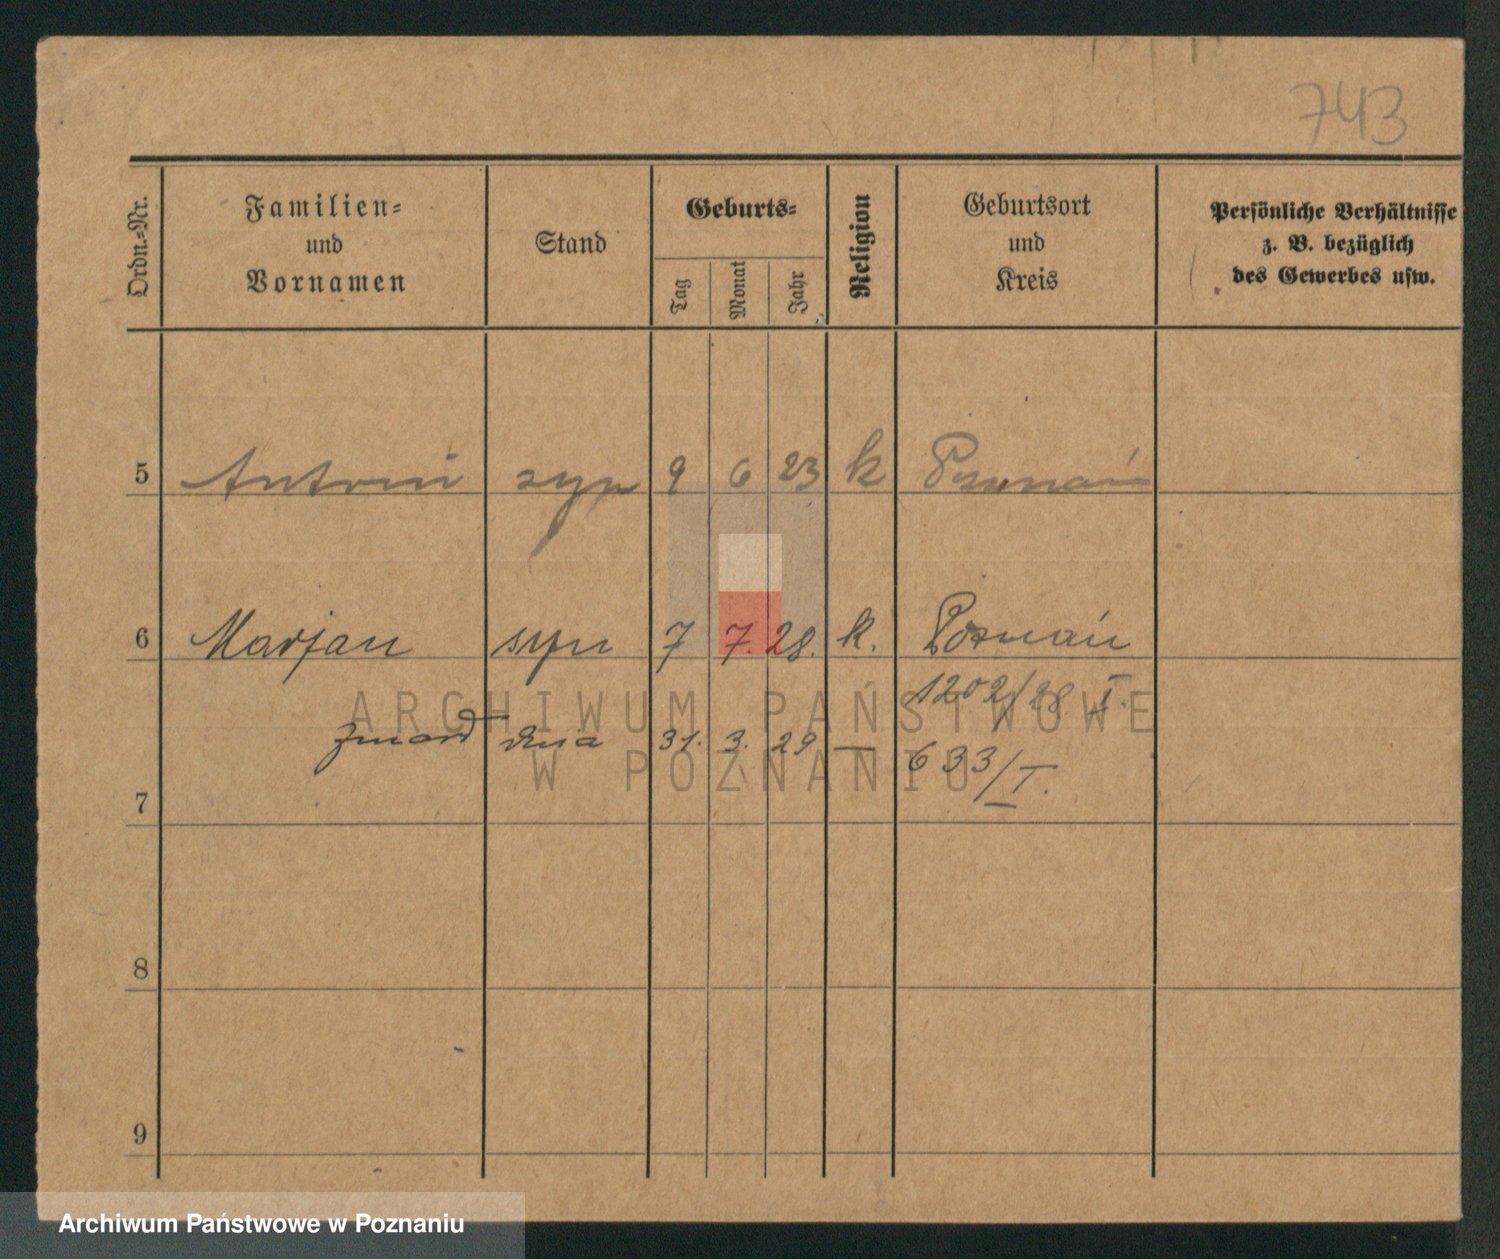 743
Ordn.-Nr.
Familien-
und
Vornamen
Stand
Geburts-
Tag
Monat
Jahr
Religion
Geburtsort
und
Kreis
Persönliche Verhältnisse
z. B. bezüglich
des Gewerbes usw.
5 Antoni syn 9 6 23 k Poznań
6 Marjan syn 7 7. 28. k. Poznań
1202/28 I.
zmarł dnia 31. 3. 29 — 633/I.
7
8
9
ARCHIWUM PAŃSTWOWE
W POZNANIU
Archiwum Państwowe w Poznaniu